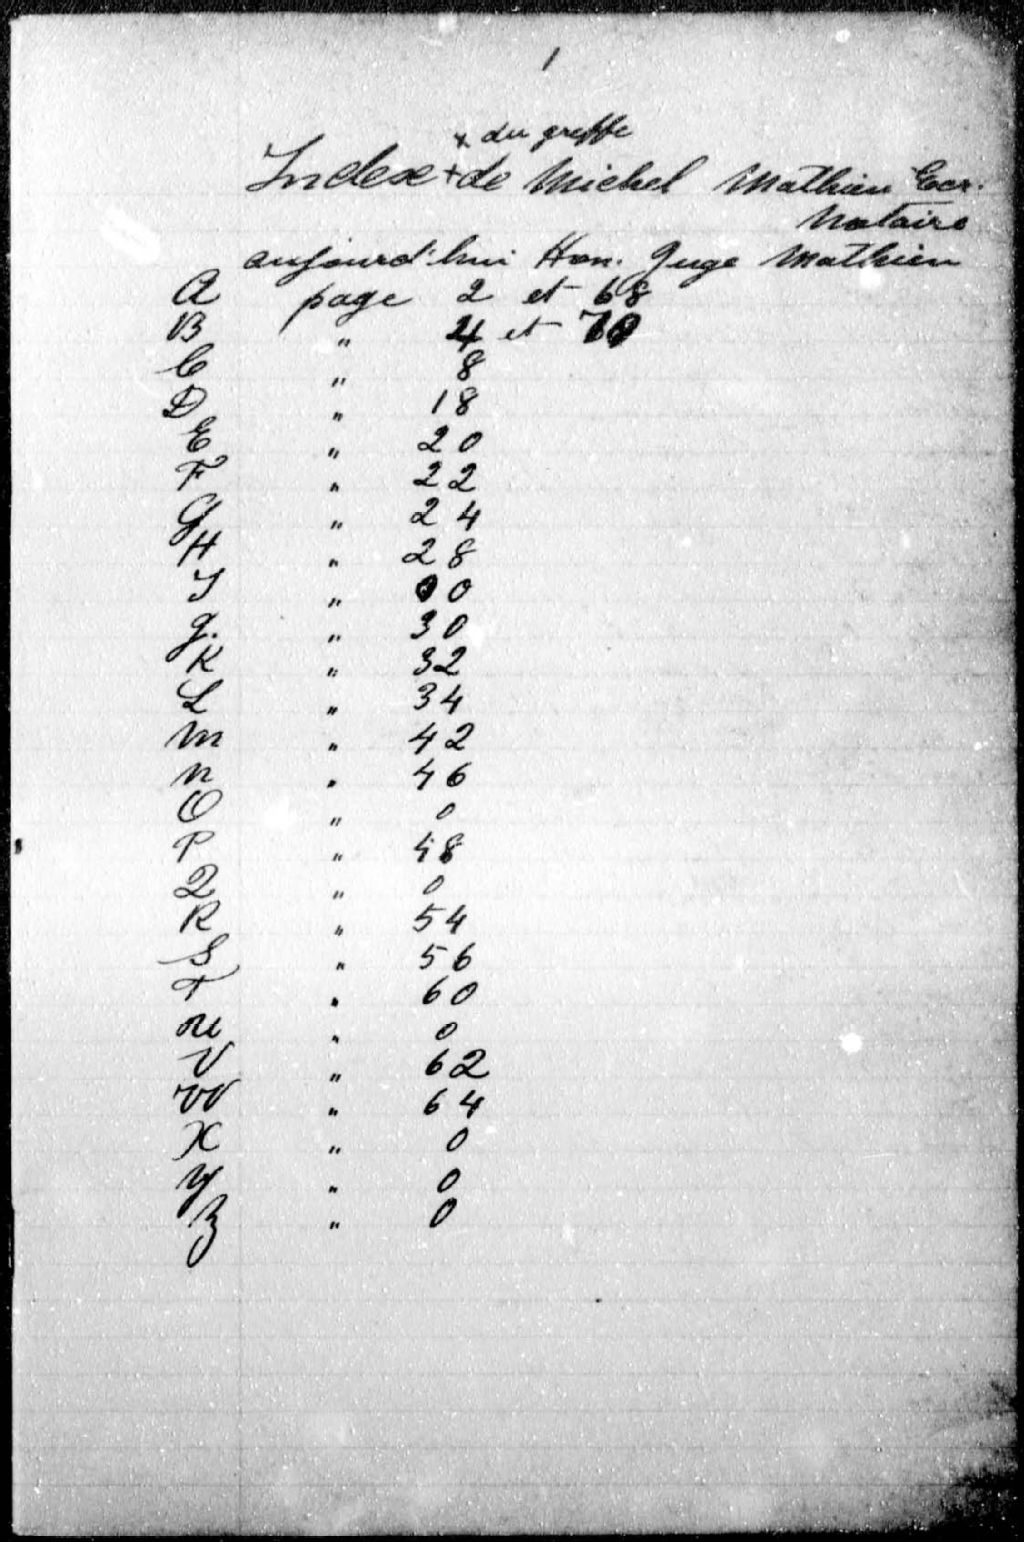 1
+ du greffe
Index + de Michel Mathieu Ecr.
Notaire
aujourd'hui Hon. Juge Mathieu
A page 2 et 68
B " 4 et 70
C " 8
D " 18
E " 20
F " 22
G " 24
H " 28
I " 00
J. " 30
K " 32
L " 34
M " 42
N " 46
O " 0
P " 48
Q " 0
R " 54
S " 56
T " 60
U " 0
V " 62
W " 64
X " 0
Y " 0
Z " 0